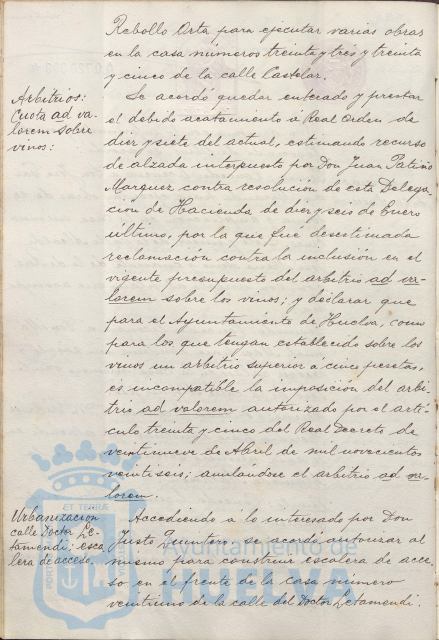 Rebollo Orta para ejecutar varias obras
en la casa números treinta y tres y treinta
y cinco de la calle Castelar.
Arbitrios:
Cuota ad va-
lorem sobre
vinos:
Se acordó quedar enterado y prestar
el debido acatamiento a Real Orden de
diez y siete del actual, estimando recurso
de alzada interpuesto por Don Juan Patiño
Marquez contra resolución de esta Delega-
ción de Hacienda de diez y seis de Enero
último, por la que fué desestimada
reclamación contra la inclusión en el
vigente presupuesto del arbitrio ad va-
lorem sobre los vinos; y declarar que
para el Ayuntamiento de Huelva, como
para los que tengan establecido sobre los
vinos un arbitrio superior a cinco pesetas,
es incompatible la imposición del arbi-
trio ad valorem autorizado por el artí-
culo treinta y cinco del Real Decreto de
veintinueve de Abril de mil novecientos
veintiseis; anulándose el arbitrio ad va-
lorem.
Urbanización
calle Doctor Le-
tamendi; esca
lera de acceso.
Accediendo a lo interesado por Don
Justo Quintero: se acordó autorizar al
mismo para construir escalera de acce-
so en el frente de la casa número
veintiuno de la calle del Doctor Letamendi.
Ayuntamiento de
HUELVA